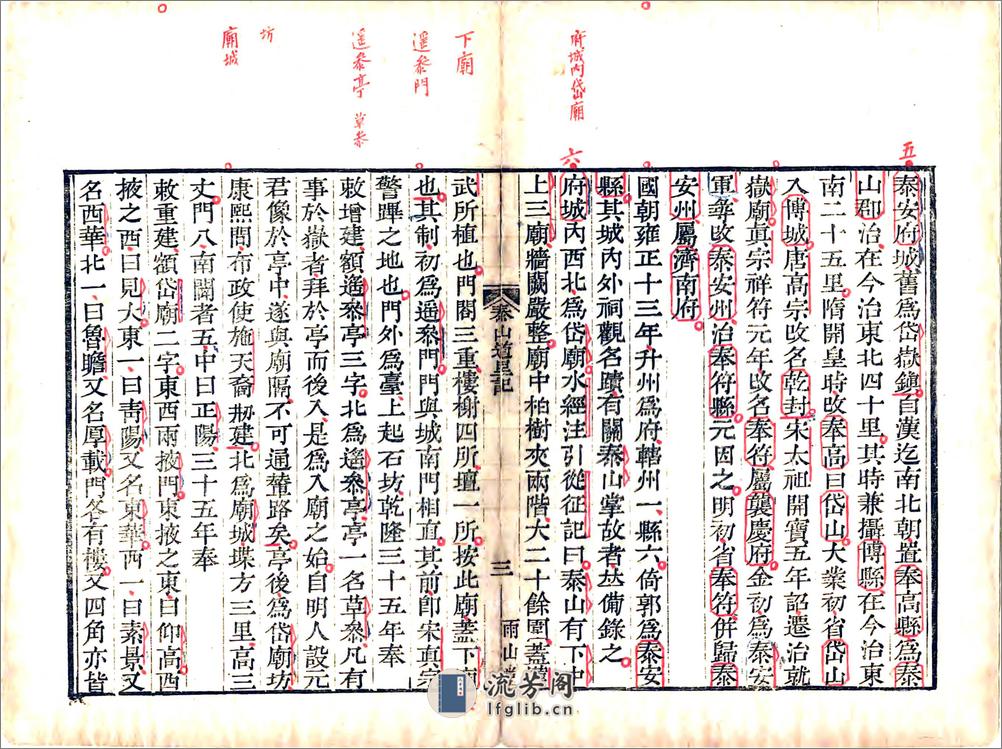 五
泰安府城舊爲岱嶽鎮自漢迄南北朝置奉高縣爲泰
山郡治在今治東北四十里其時兼攝博縣在今治東
南二十五里隋開皇時改奉高曰岱山大業初省岱山
入博城唐高宗改名乾封宋太祖開寶五年詔遷治就
嶽廟真宗祥符元年改名奉符屬襲慶府金初爲泰安
軍尋改泰安州治奉符縣元因之明初省奉符併歸泰
安州屬濟南府
國朝雍正十三年升州爲府轄州一縣六倚郭爲泰安
縣其城內外祠觀名蹟有關泰山掌故者并備錄之
府城内岱廟
六
府城內西北爲岱廟水經注引從征記曰泰山有下中
上三廟牆闕嚴整廟中柏樹夾兩階大二十餘圍蓋漢
泰山道里記
三
雨山堂
下廟
武所植也門閣三重樓榭四所壇一所按此廟蓋下廟
遥參門
也其制初爲遥參門門與城南門相直其前卽宋真宗
警蹕之地也門外爲臺上起石坊乾隆三十五年奉
遥參亭 草參
敕增建額遥參亭三字北爲遥參亭亭一名草參凡有
事於嶽者拜於亭而後入是爲入廟之始自明人設元
坊
君像於亭中遂與廟隔不可通輦路矣亭後爲岱廟坊
廟城
康熙間布政使施天裔刱建北爲廟城堞方三里高三
丈門八南闢者五中曰正陽三十五年奉
敕重建額岱廟二字東西兩掖門東掖之東曰仰高西
掖之西曰見大東一曰青陽又名東華西一曰素景又
名西華北一曰魯瞻又名厚載門各有樓又四角亦皆
流芳阁
lfglib.cn